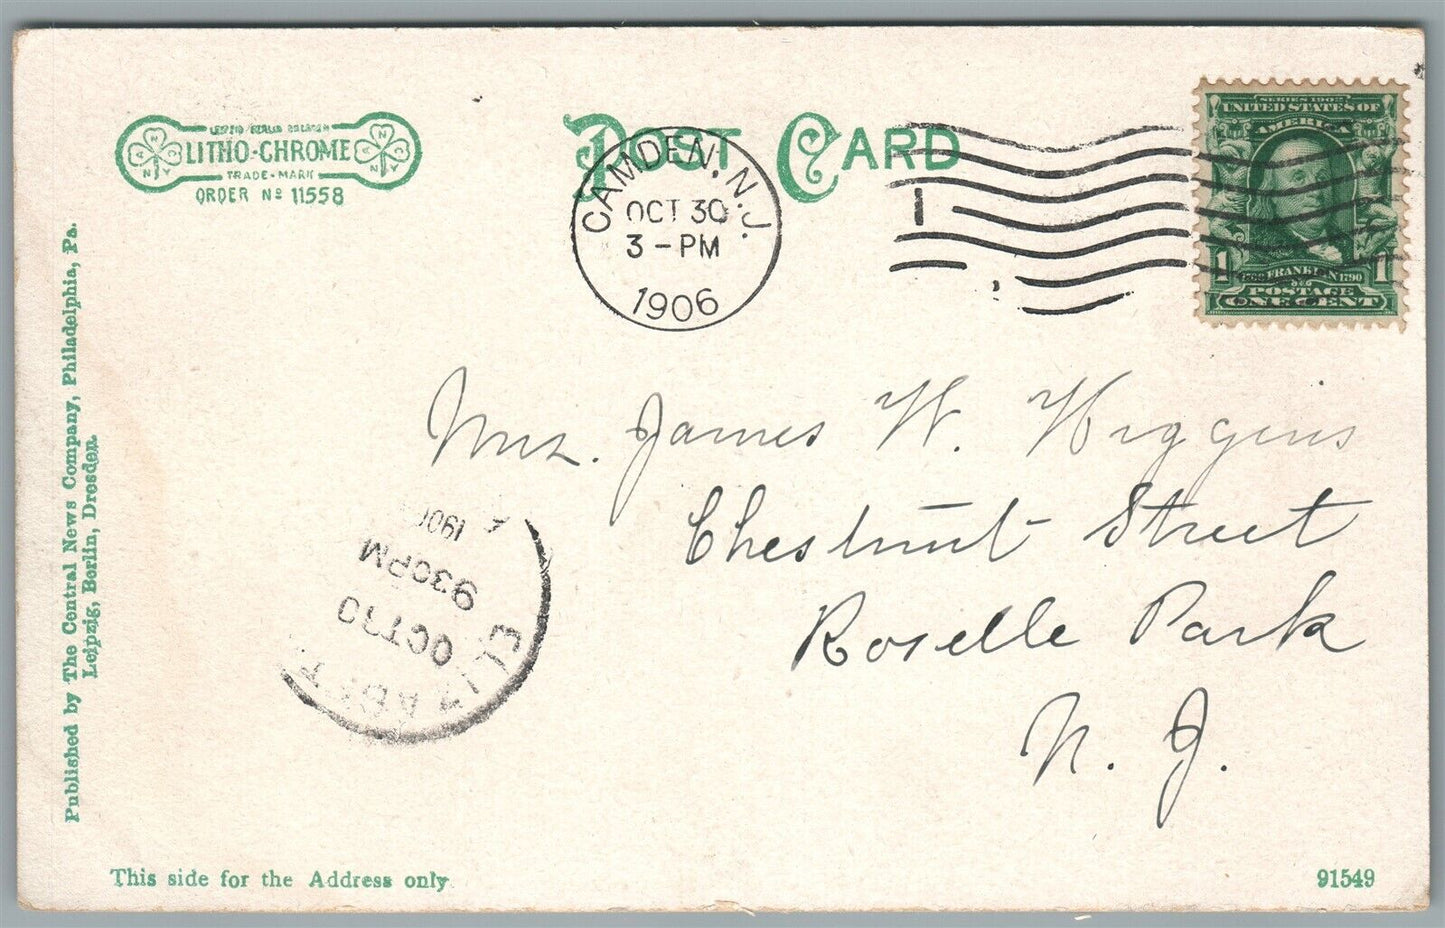 LEIPZIG BERLIN DRESDEN
LITHO-CHROME
TRADE-MARK
ORDER Nº 11558
POST CARD
CAMDEN, N.J.
OCT 30
3-PM
1906
1
SERIES 1902
UNITED STATES OF
AMERICA
1706 FRANKLIN 1790
1 1
POSTAGE
ONE CENT
Mrs. James W. Wiggins
Chestnut Street
Roselle Park
N. J.
OCT 30
930PM
190
Published by The Central News Company, Philadelphia, Pa.
Leipzig, Berlin, Dresden.
This side for the Address only
91549